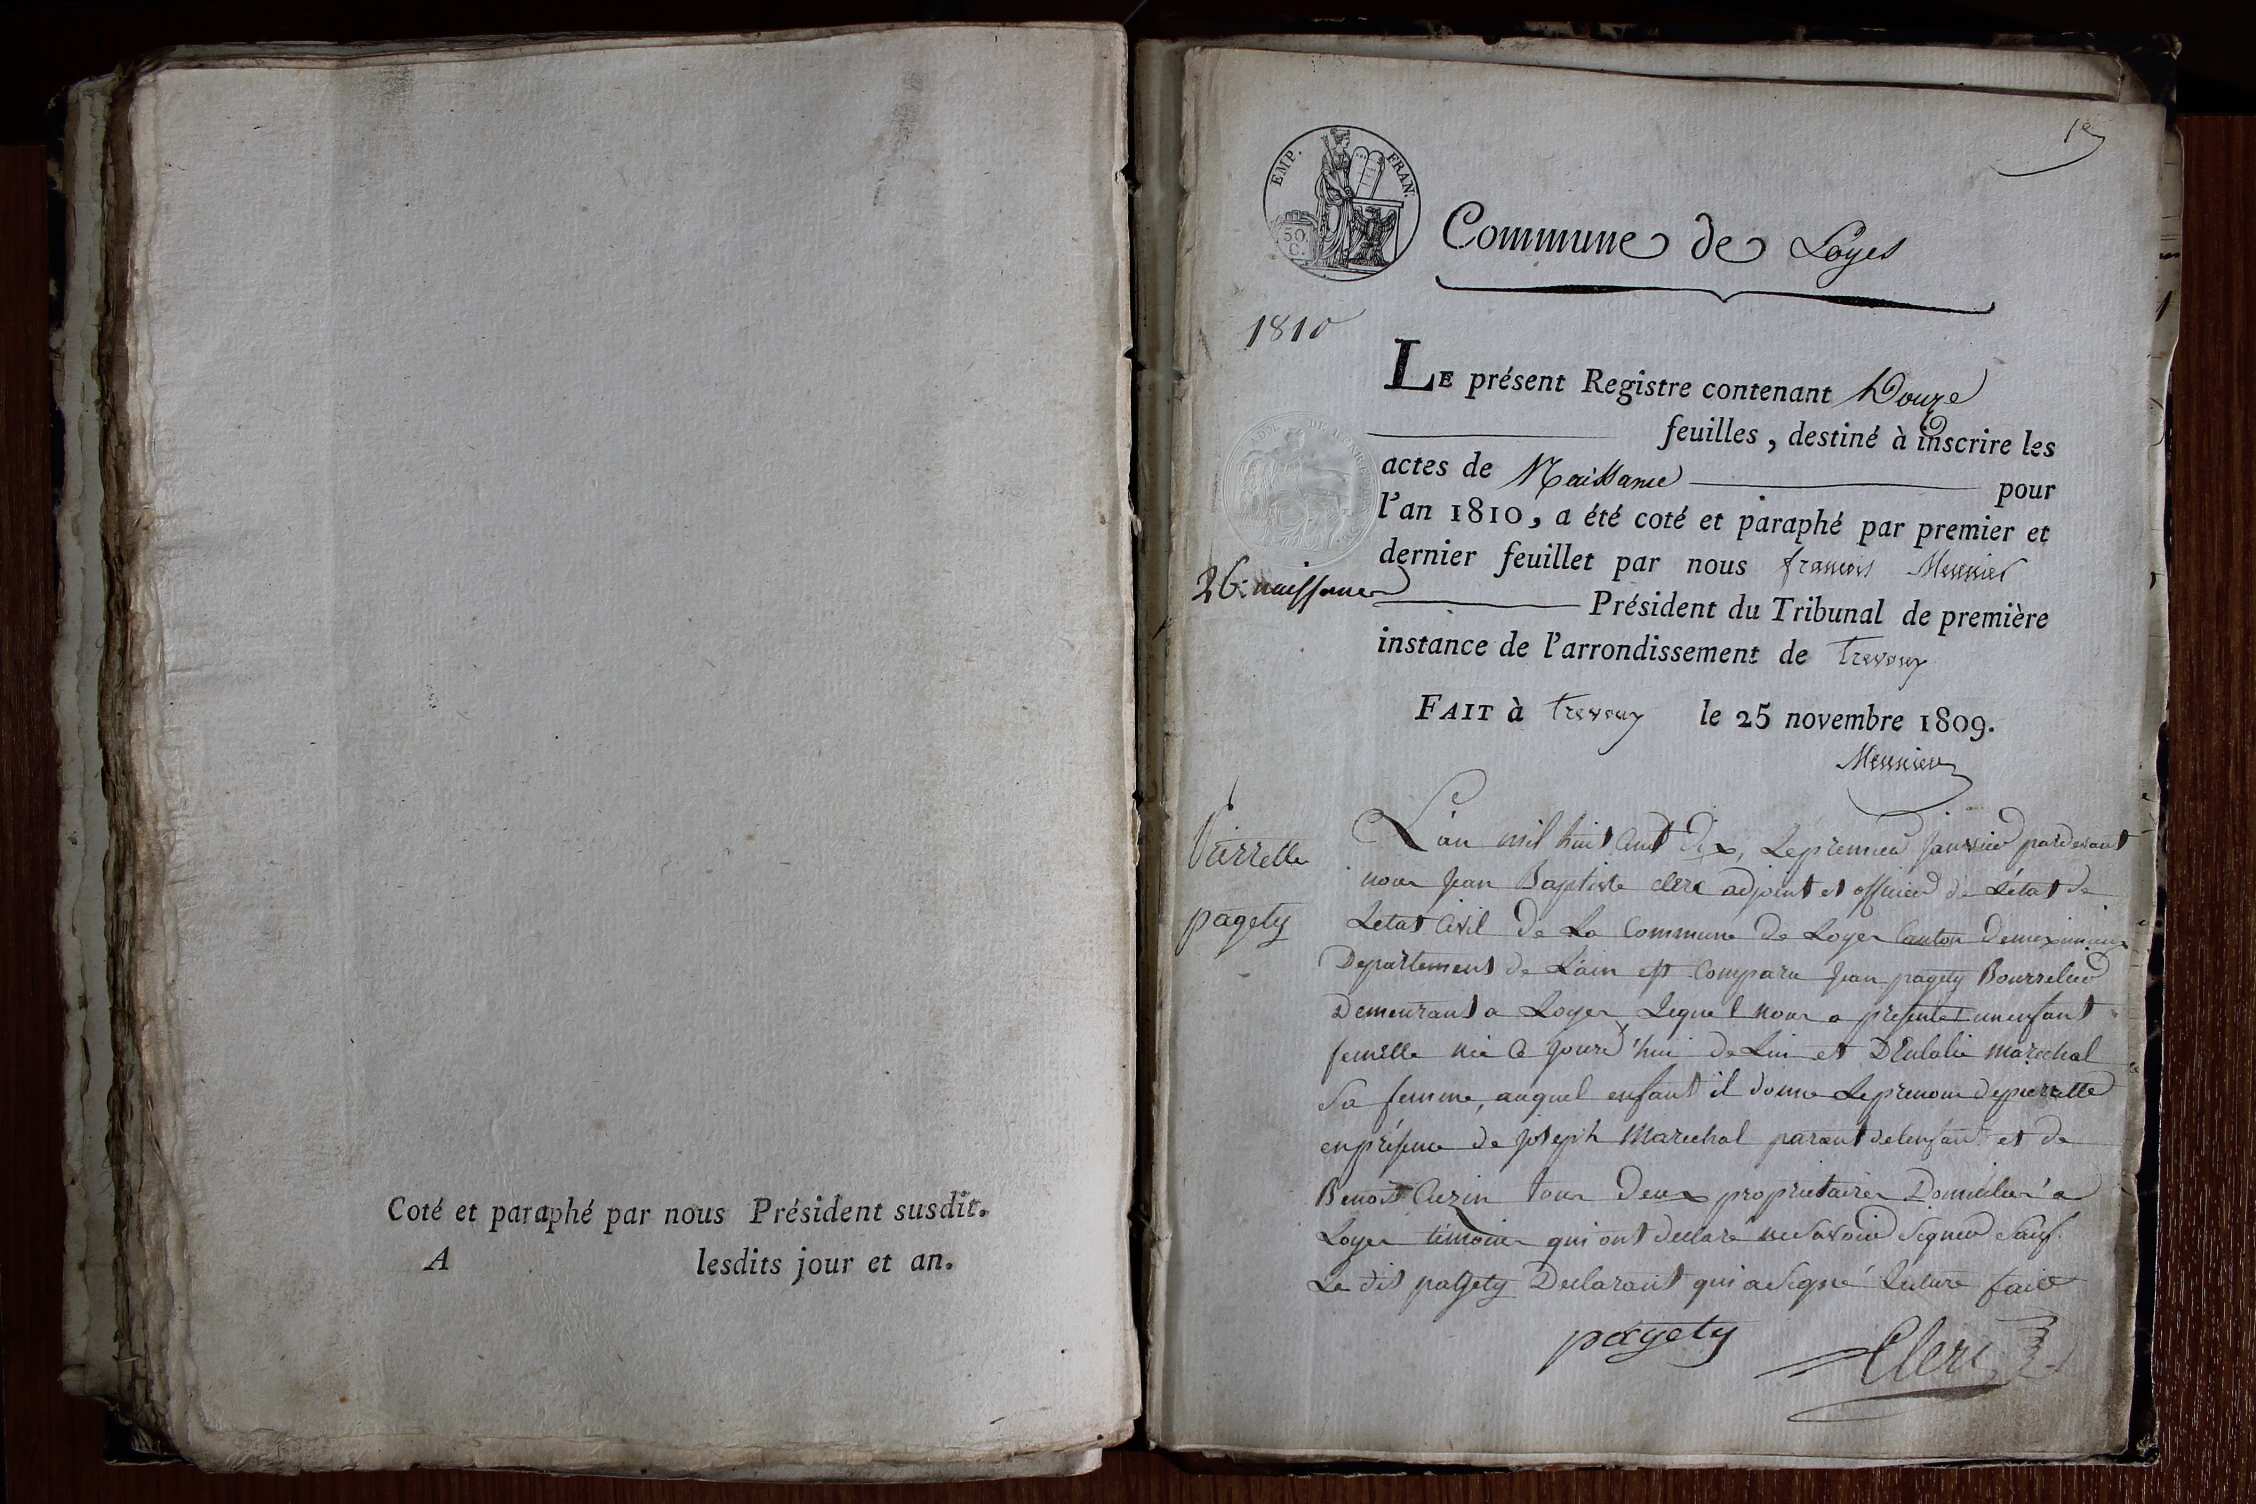 Coté et paraphé par nous Président susdit.
A lesdits jour et an.
1er
EMP. FRAN.
50 C.
Commune de Loyes
1810
LE présent Registre contenant Douze
feuilles, destiné à inscrire les
actes de Naissance pour
l'an 1810, a été coté et paraphé par premier et
dernier feuillet par nous françois Meunier
26 naissances
Président du Tribunal de première
instance de l'arrondissement de Trevoux
FAIT à Trevoux le 25 novembre 1809.
Meunier
Pierrette
pagety
L'an mil huit Cent Dix, Le premier Janvier pardevant
nous Jean Baptiste clerc adjoint et officier de L'état de
Letat Civil de La Commune de Loyes Canton demeximieux
Departement de L'ain est Comparu Jean pagety Bourrelier
Demeurant a Loyes, Lequel nous a presenté un enfant
femelle née Ce Jourd'hui de Lui et D'Eulalie marechal
Sa femme, auquel enfant il donne Le prenom depierrette
en présence de Joseph Marechal parent de lenfant et de
Benoit Cuzin tous Deux proprietaires Domicilies a
Loyes témoins qui ont declaré ne Savoir Signer Sauf
Le dit pagety Declarant qui a Signé Lecture faite
pagety
Clerc